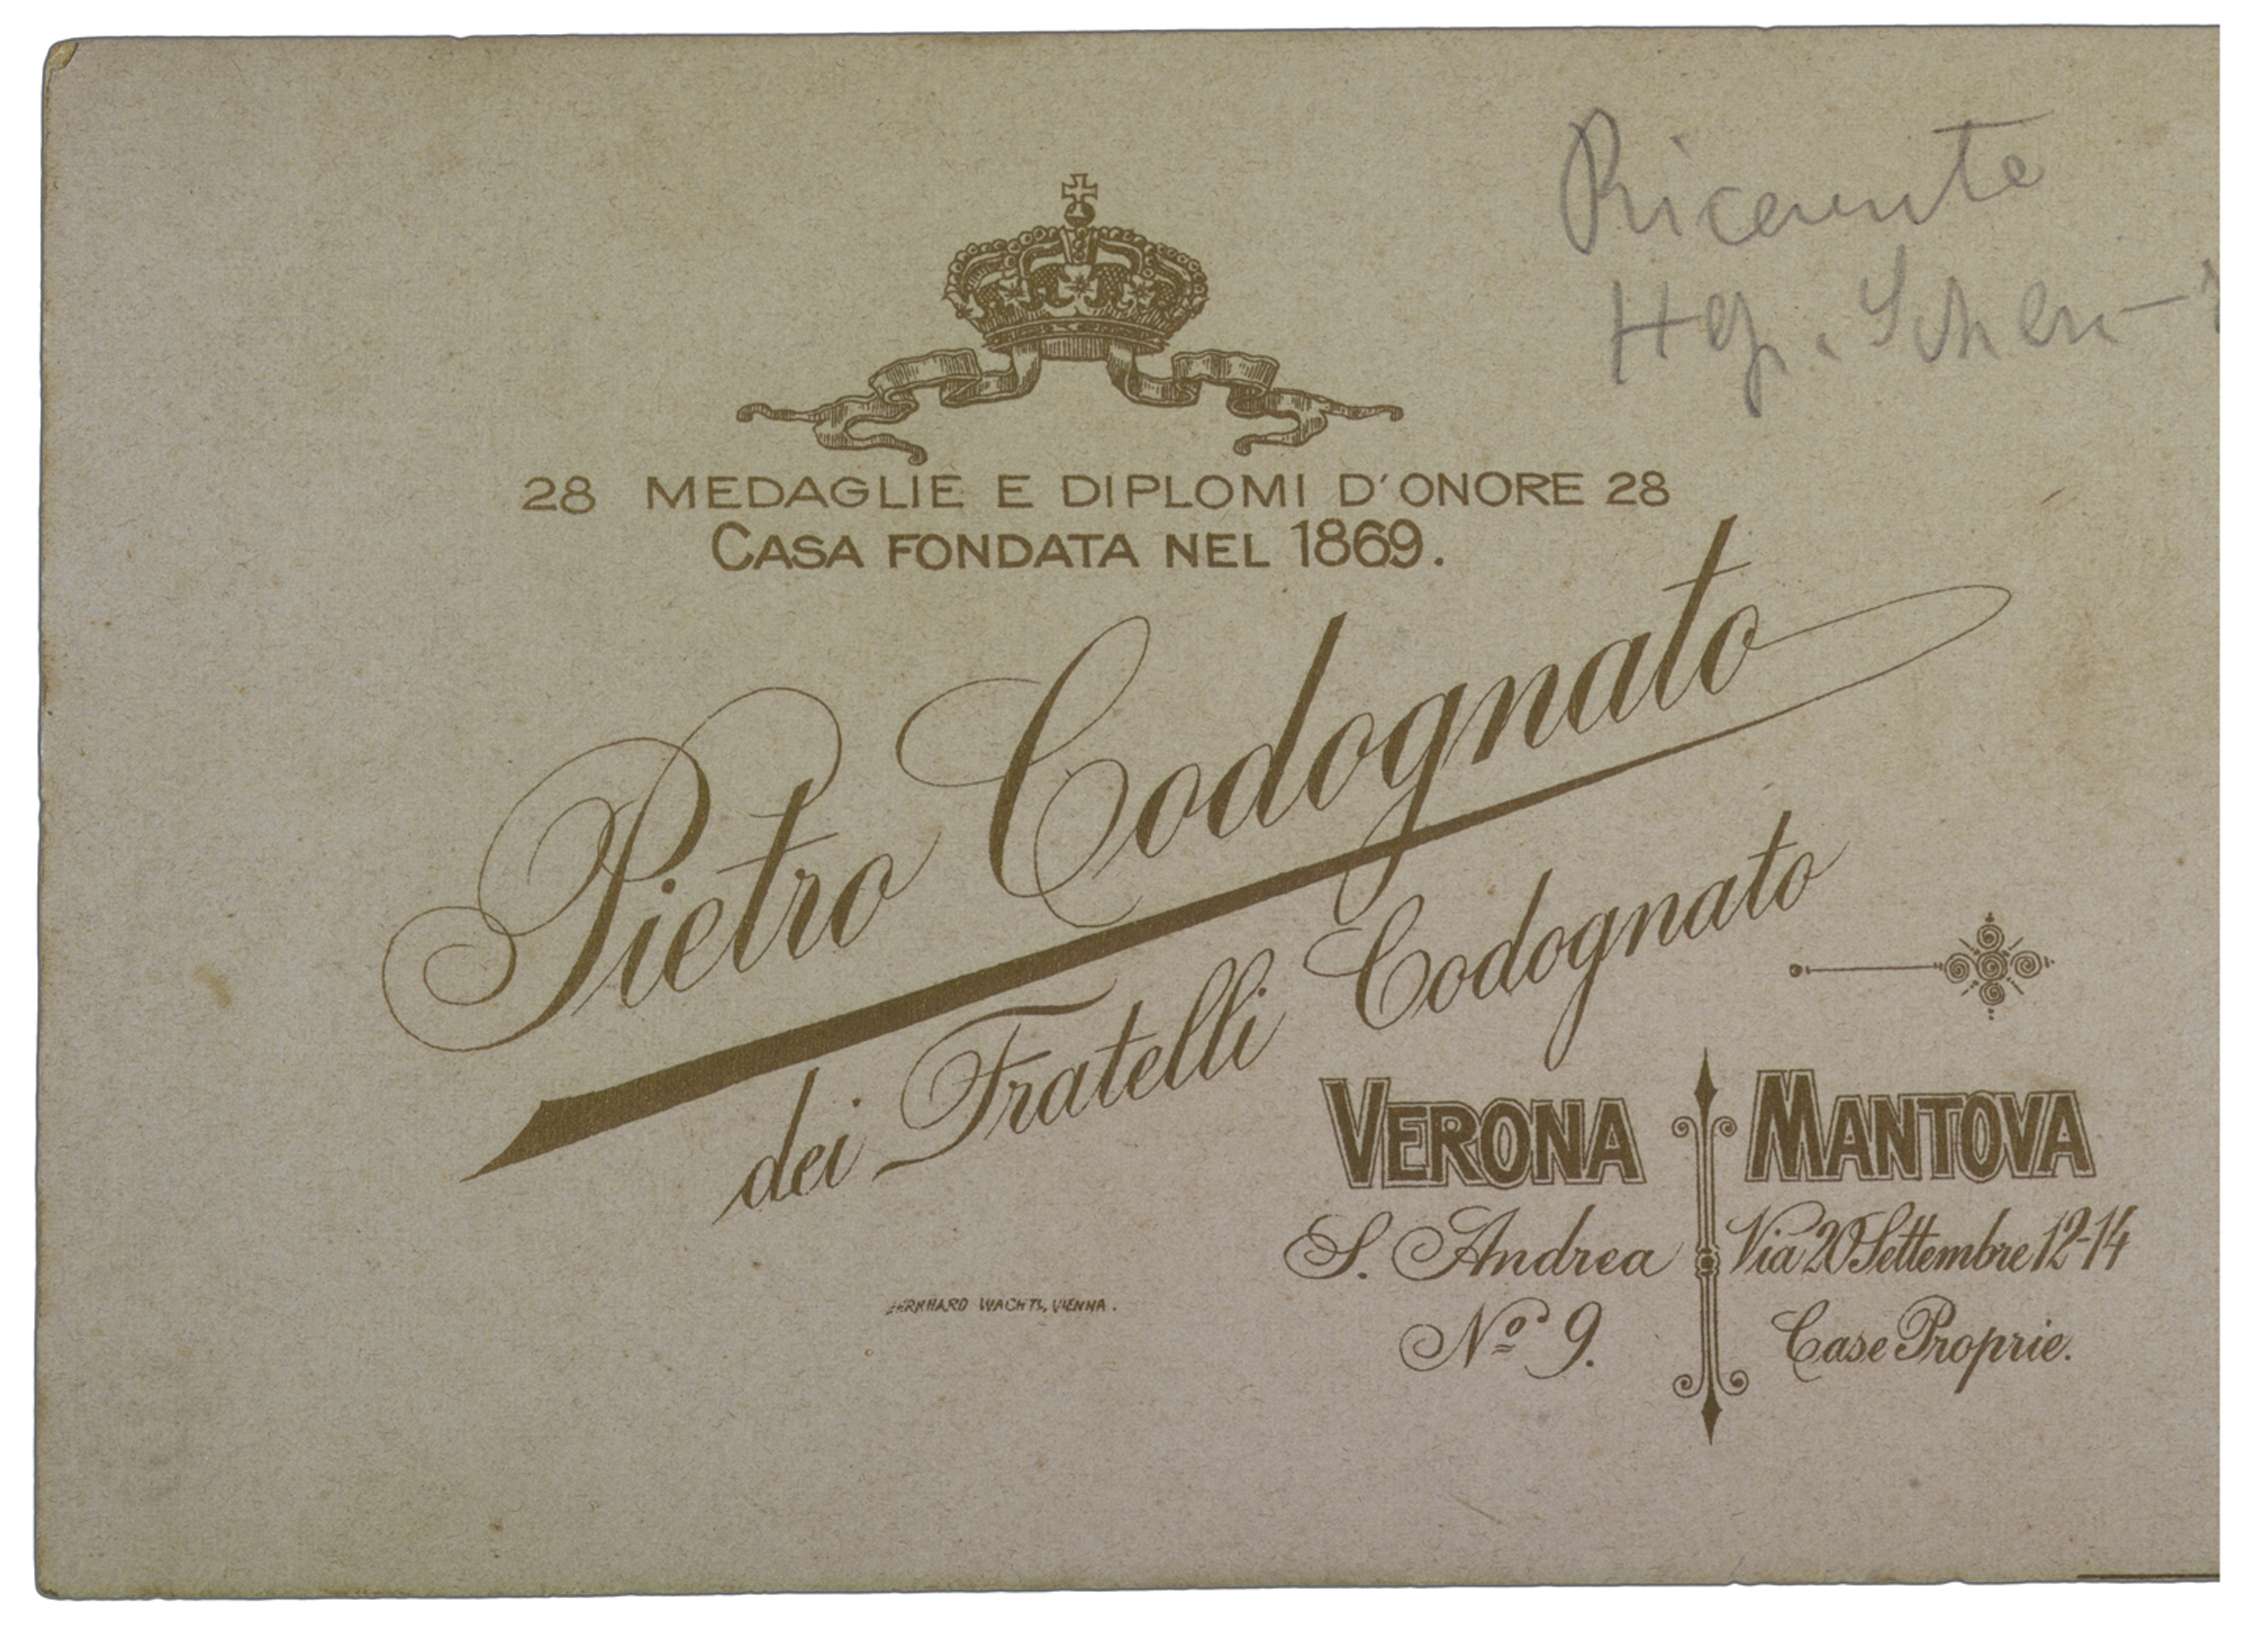 28 MEDAGLIE E DIPLOMI D'ONORE 28
CASA FONDATA NEL 1869.
Pietro Codognato
dei Fratelli Codognato
VERONA
S. Andrea
Nº 9.
MANTOVA
Via 20 Settembre 12-14
Case Proprie.
BERNHARD WACHTL, VIENNA.